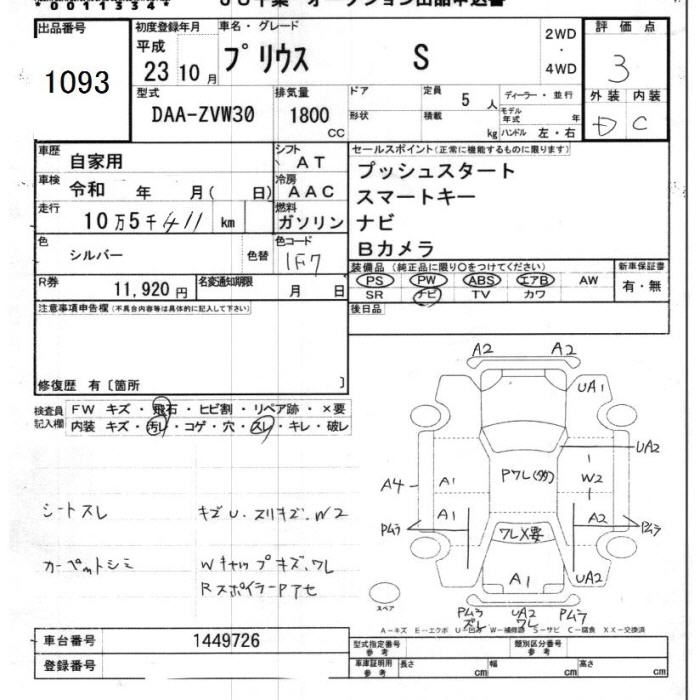 00113344
出品番号
1093
初度登録年月
平成
23 10月
車名・グレード
プリウス S
2WD
・
4WD
評価点
3
外装 内装
D C
型式
DAA-ZVW30
排気量
1800
CC
ドア
形状
定員 5 人
積載 kg
ディーラー・並行
モデル年式 年
ハンドル 左・右
車歴
自家用
シフト
AT
セールスポイント(正常に機能するものに限ります)
プッシュスタート
スマートキー
ナビ
Bカメラ
車検
令和 年 月( 日)
冷房
AAC
走行
10万5千411 km
燃料
ガソリン
色
シルバー
色替
色コード
1F7
装備品(純正品に限り○をつけてください)
PS PW ABS エアB AW
SR ナビ TV カワ
新車保証書
有・無
R券
11,920円
名変通知期限
月 日
後日品
注意事項申告欄(不具合内容等は具体的に記入して下さい)
修復歴 有〔箇所 〕
検査員記入欄
FW キズ・飛石・ヒビ割・リペア跡・×要
内装 キズ・汚レ・コゲ・穴・スレ・キレ・破レ
シートスレ
キズU.スリキズ.W2
カーペットシミ
Wキャップキズ.ワレ
RスポイラーPアセ
A2 A2
UA1
UA2
Pワレ
W2
A4
A1
A1
A2
Pムラ
Pムラ
ワレX要
A1
UA2
スペア
Pムラ ズレ
UA2 ワレ
Pムラ
A-キズ E-エクボ U-凹み W-補修跡 S-サビ C-腐食 XX-交換済
車台番号
1449726
登録番号
型式指定番号
参考
類別区分番号
参考
車庫証明用
参考
長さ cm
幅 cm
高さ cm